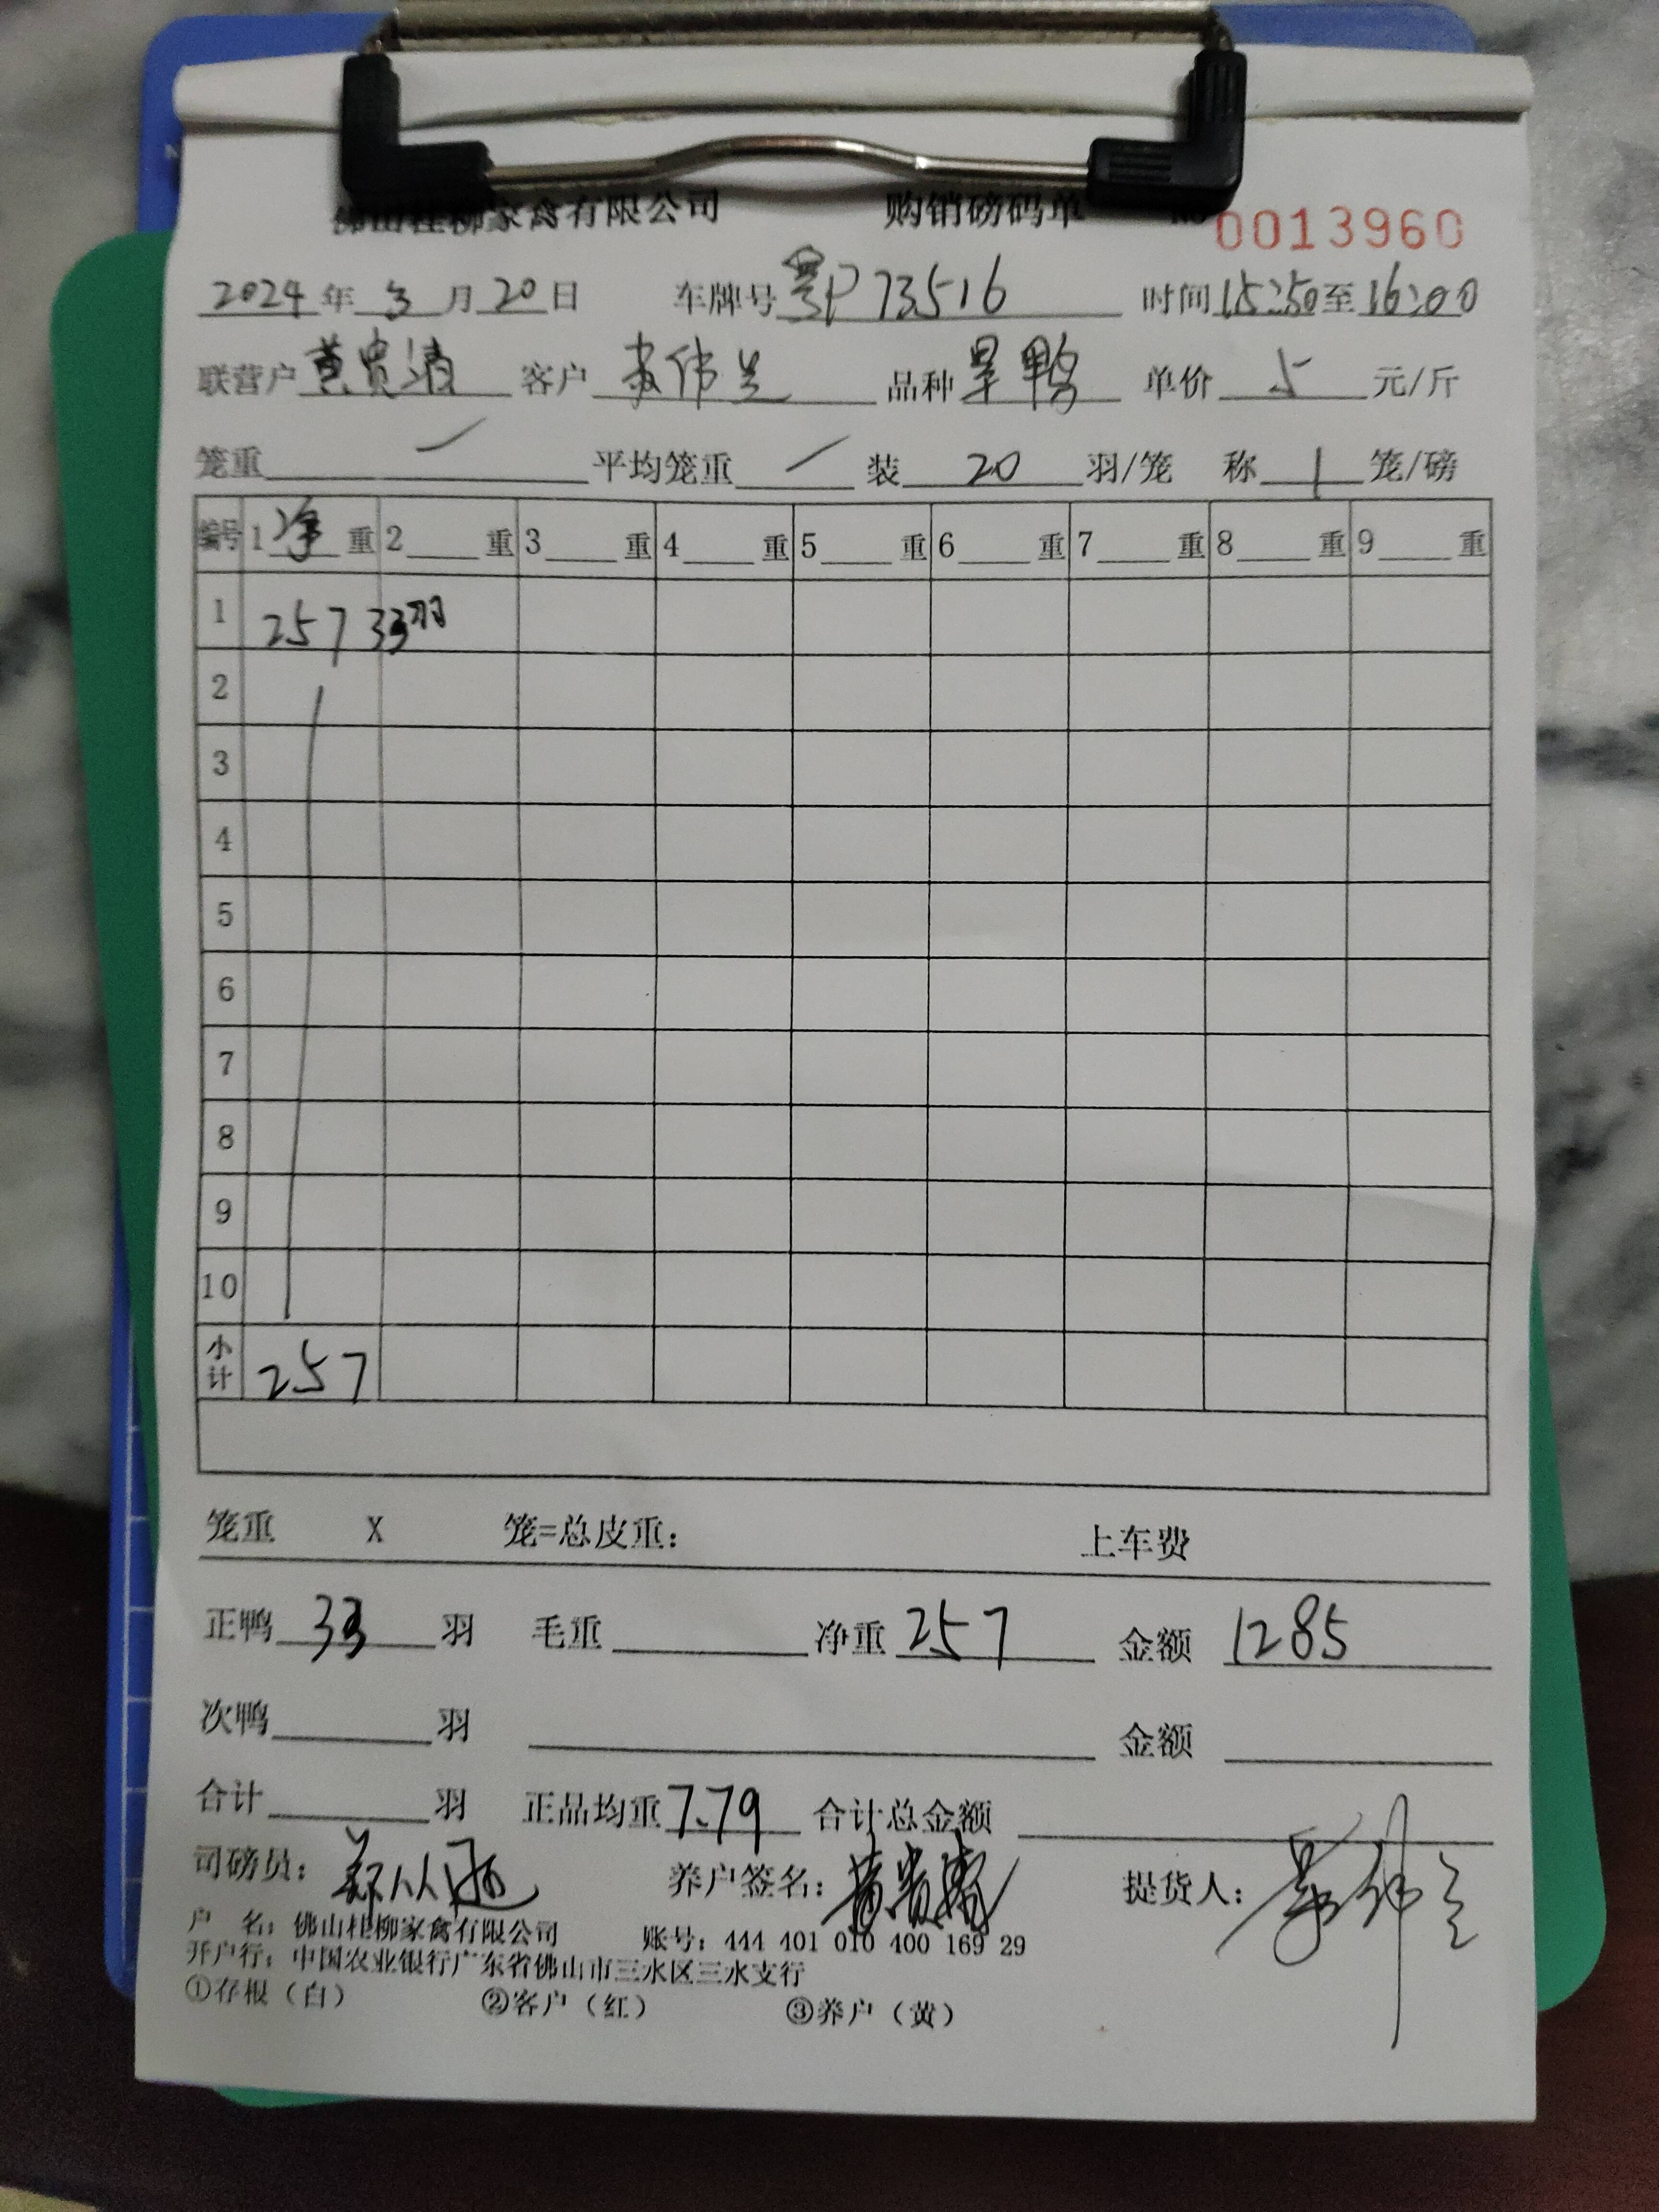 佛山桂柳家禽有限公司 购销磅码单 No 0013960
2024年3月20日 车牌号粤P73516 时间15:50至16:00
联营户黄贵清 客户 伟兰 品种旱鸭 单价5元/斤
笼重 / 平均笼重 / 装20羽/笼 称1笼/磅
编号 1净重 2____重 3____重 4____重 5____重 6____重 7____重 8____重 9____重
1 257 33羽
2
3
4
5
6
7
8
9
10
小计 257
笼重 X 笼=总皮重： 上车费
正鸭33羽 毛重 净重257 金额1285
次鸭____羽 金额
合计____羽 正品均重7.79 合计总金额
司磅员： 养户签名：黄贵清 提货人：
户 名：佛山桂柳家禽有限公司 账号：444 401 010 400 169 29
开户行：中国农业银行广东省佛山市三水区三水支行
①存根（白） ②客户（红） ③养户（黄）